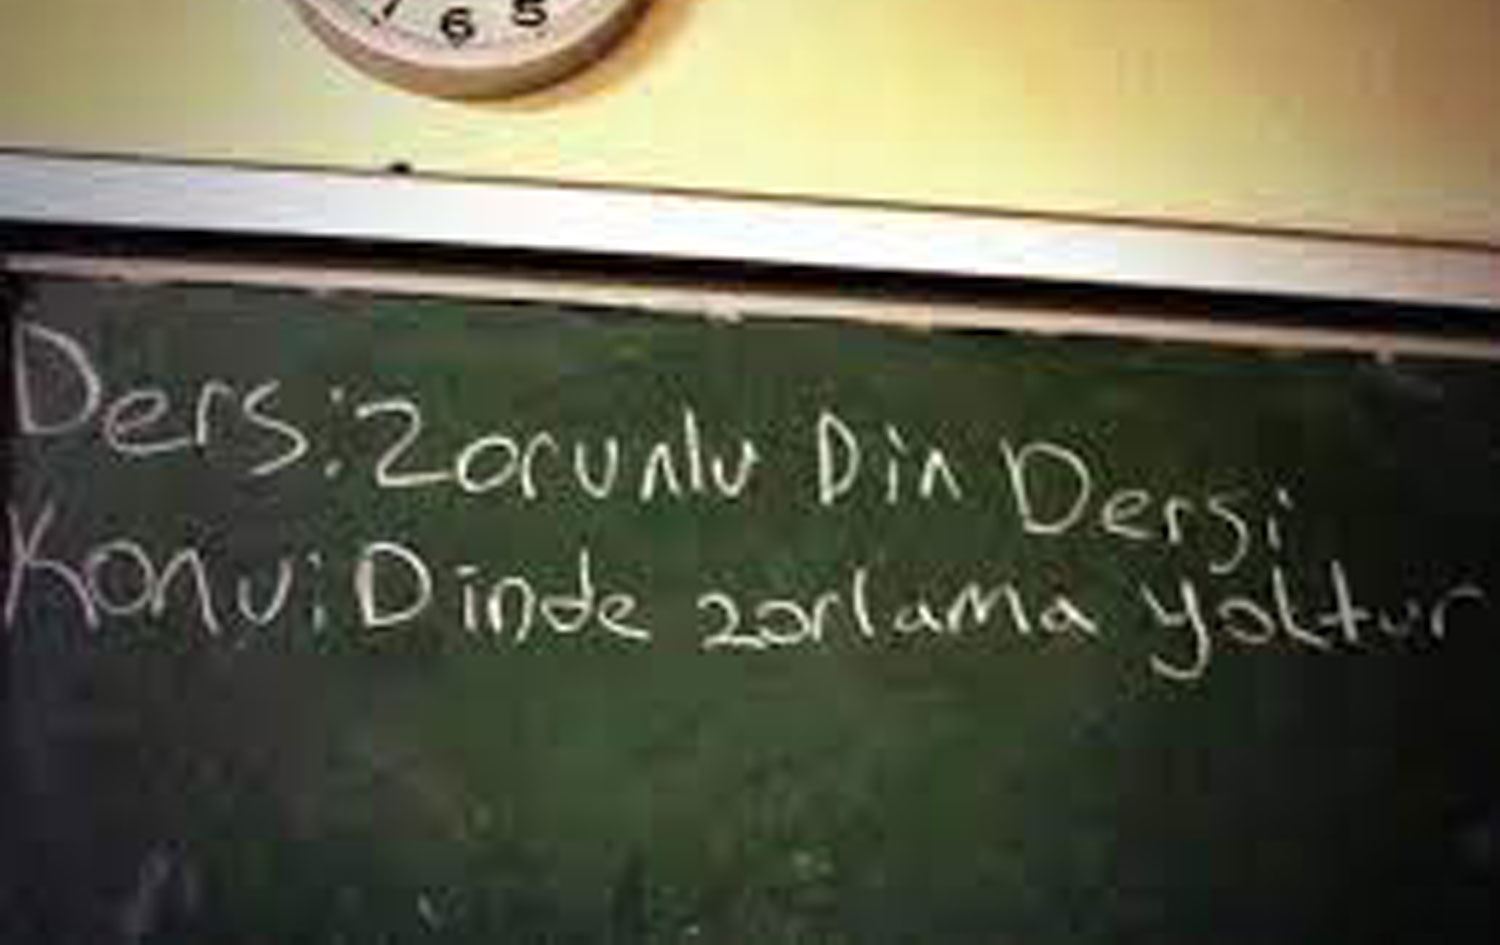 7 6 5
Ders: Zorunlu Din Dersi
Konu: Dinde zorlama yoktur